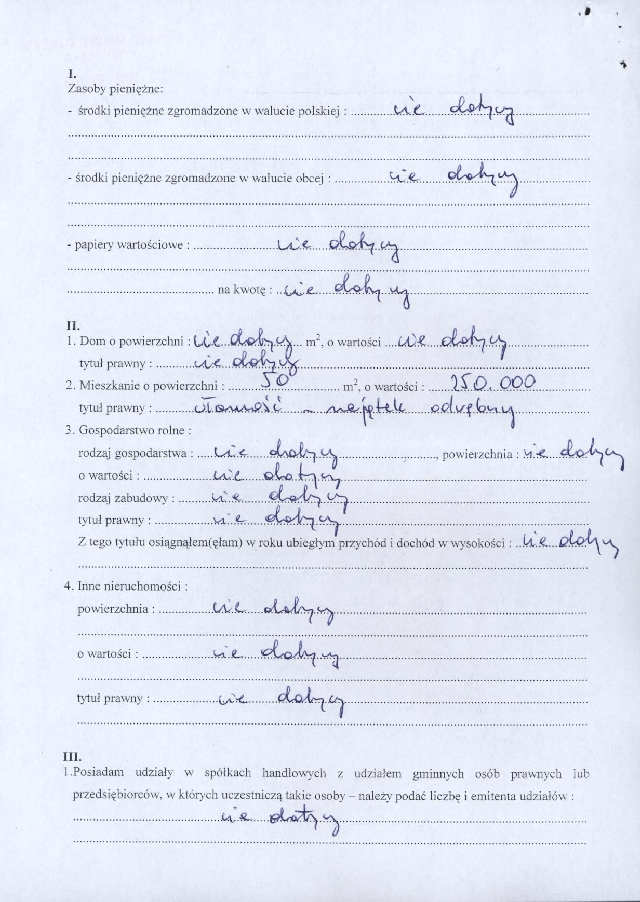 I.
Zasoby pieniężne:
- środki pieniężne zgromadzone w walucie polskiej : nie dotyczy
- środki pieniężne zgromadzone w walucie obcej : nie dotyczy
- papiery wartościowe : nie dotyczy
na kwotę : nie dotyczy
II.
1. Dom o powierzchni : nie dotyczy m², o wartości nie dotyczy
tytuł prawny : nie dotyczy
2. Mieszkanie o powierzchni : 50 m², o wartości : 250.000
tytuł prawny : własność – majątek odrębny
3. Gospodarstwo rolne :
rodzaj gospodarstwa : nie dotyczy, powierzchnia : nie dotyczy
o wartości : nie dotyczy
rodzaj zabudowy : nie dotyczy
tytuł prawny : nie dotyczy
Z tego tytułu osiągnąłem(ęłam) w roku ubiegłym przychód i dochód w wysokości : nie dotyczy
4. Inne nieruchomości :
powierzchnia : nie dotyczy
o wartości : nie dotyczy
tytuł prawny : nie dotyczy
III.
1.Posiadam udziały w spółkach handlowych z udziałem gminnych osób prawnych lub
przedsiębiorców, w których uczestniczą takie osoby – należy podać liczbę i emitenta udziałów :
nie dotyczy